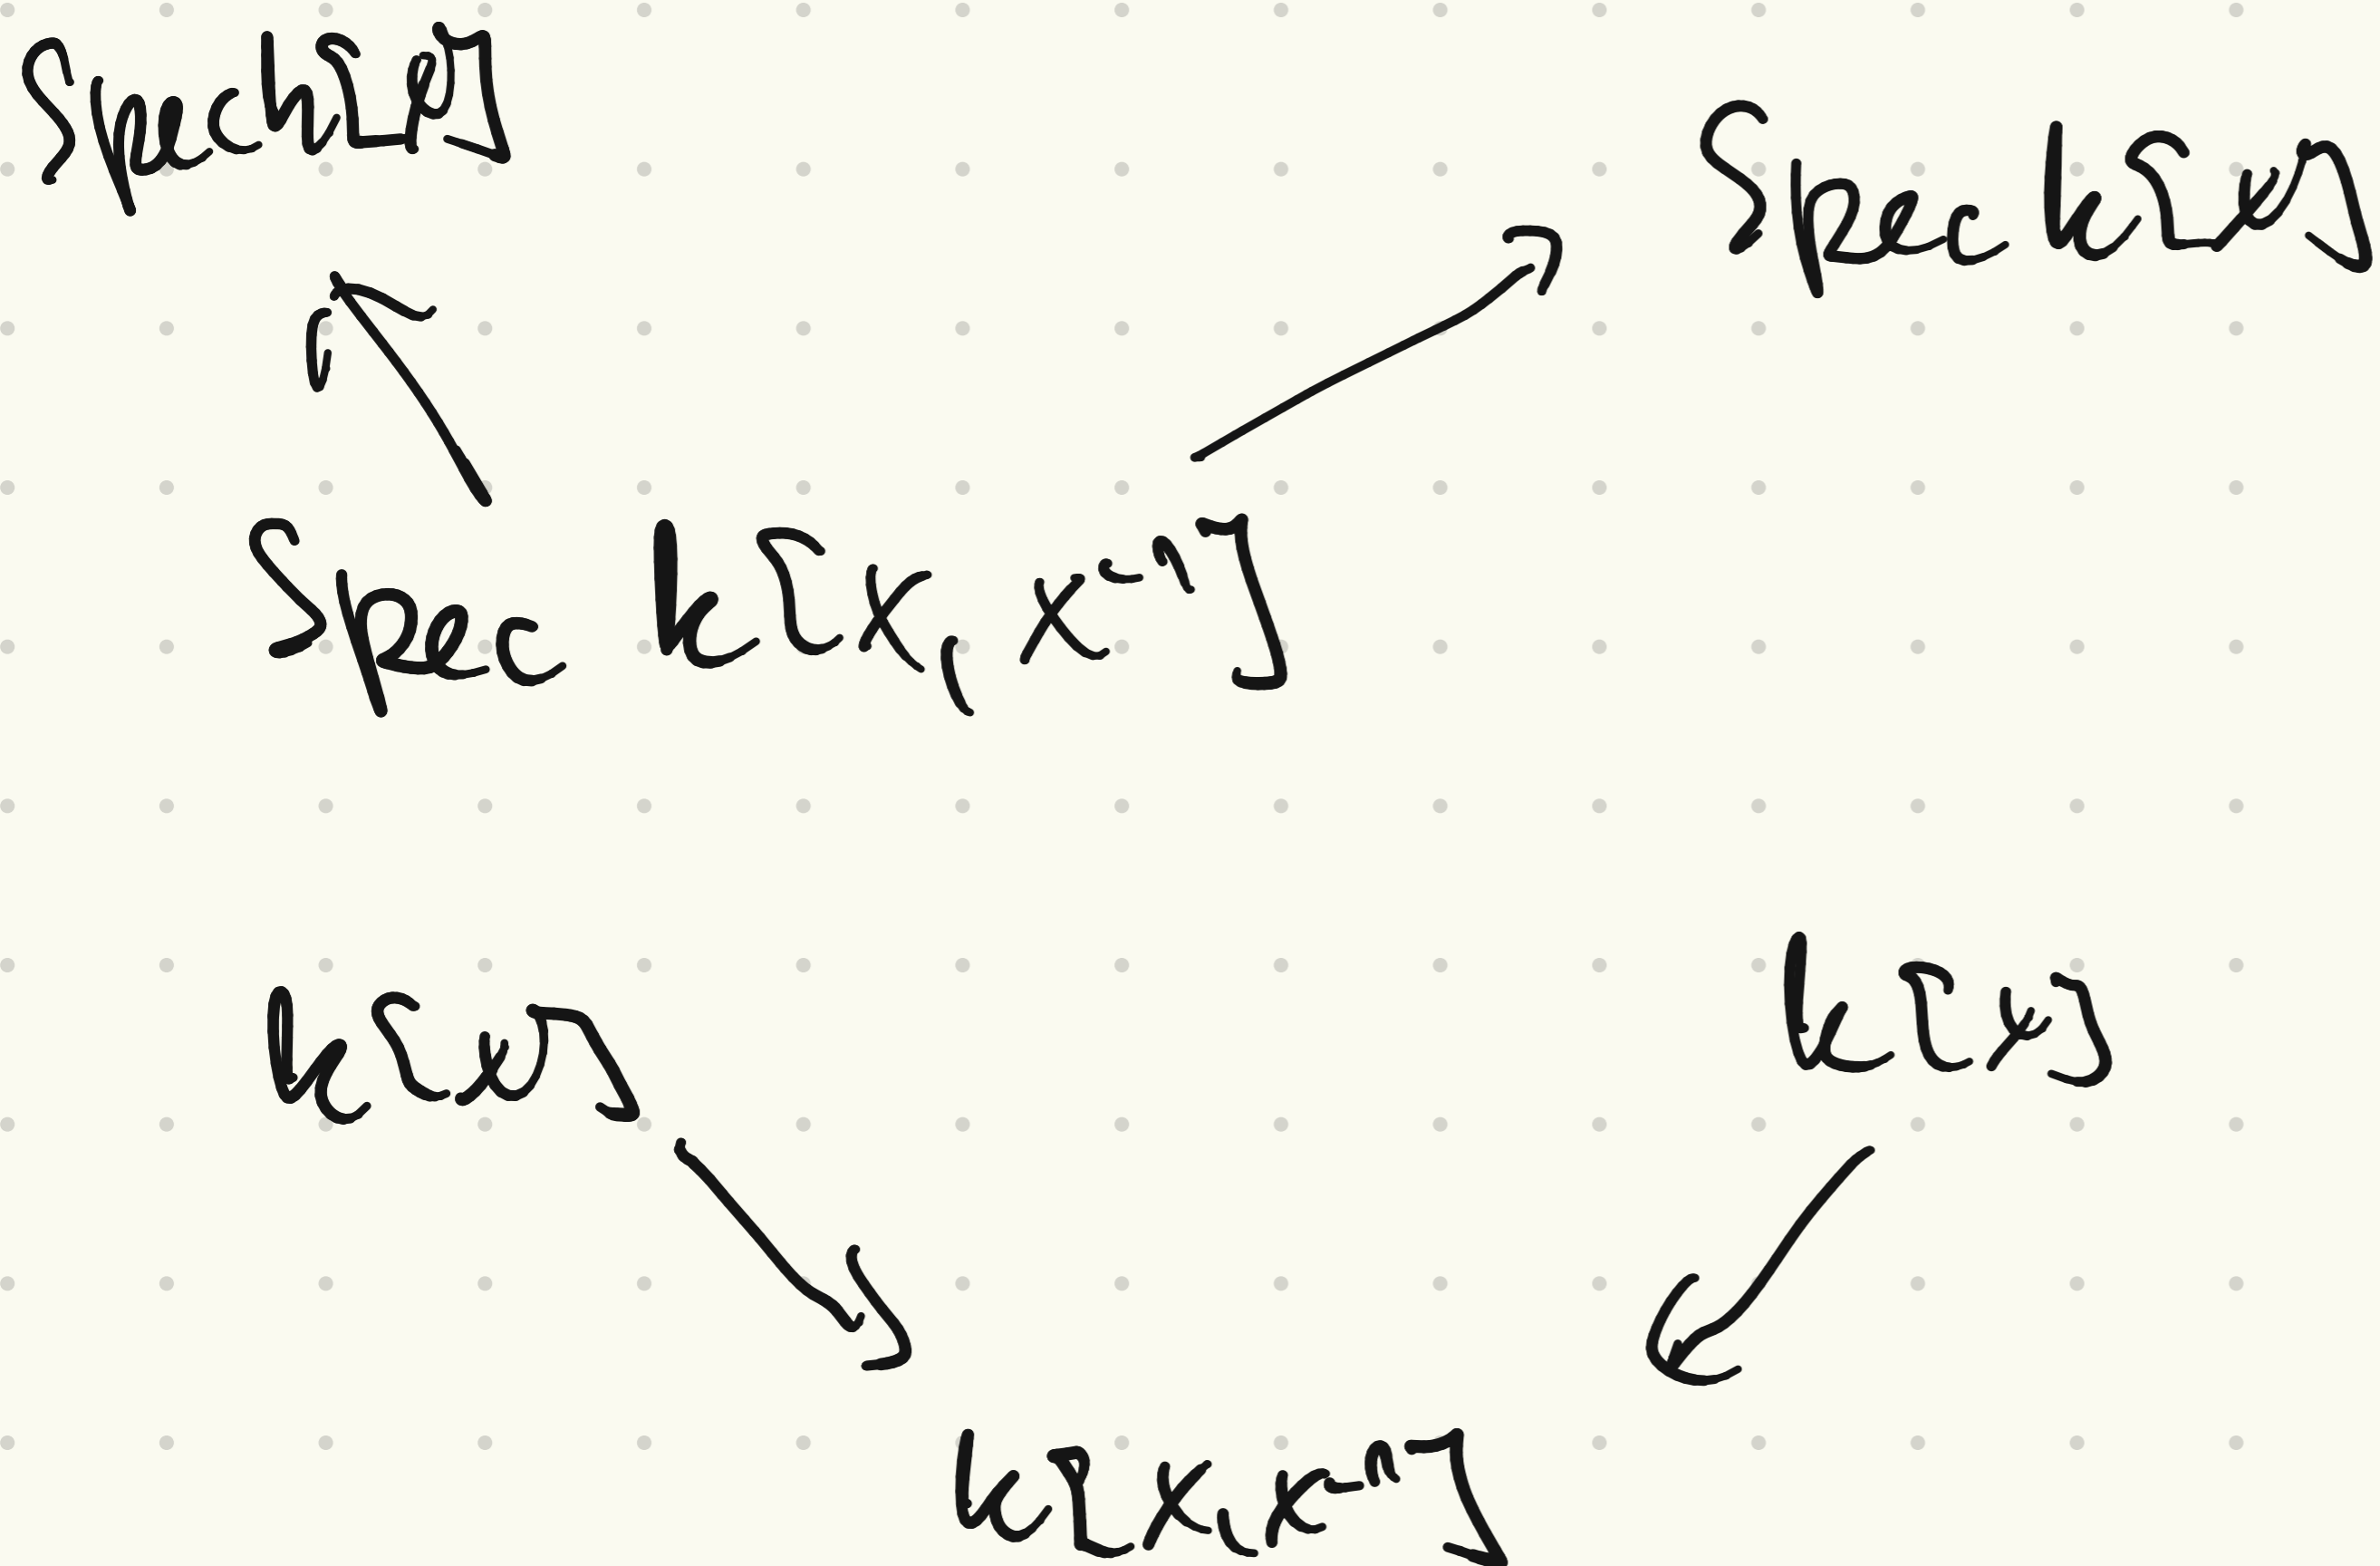 Spec k[x]
Spec k[x]
Spec k[x, x⁻¹]
k[x]
k[x]
k[x, x⁻¹]